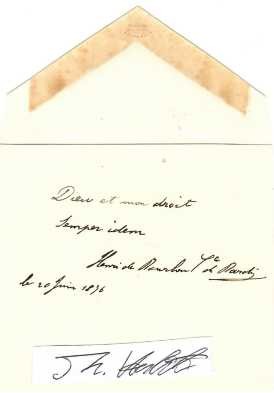 Dieu et mon droit
Semper idem
Henri de Bourbon Cte de Bardi
le 20 Juin 1896